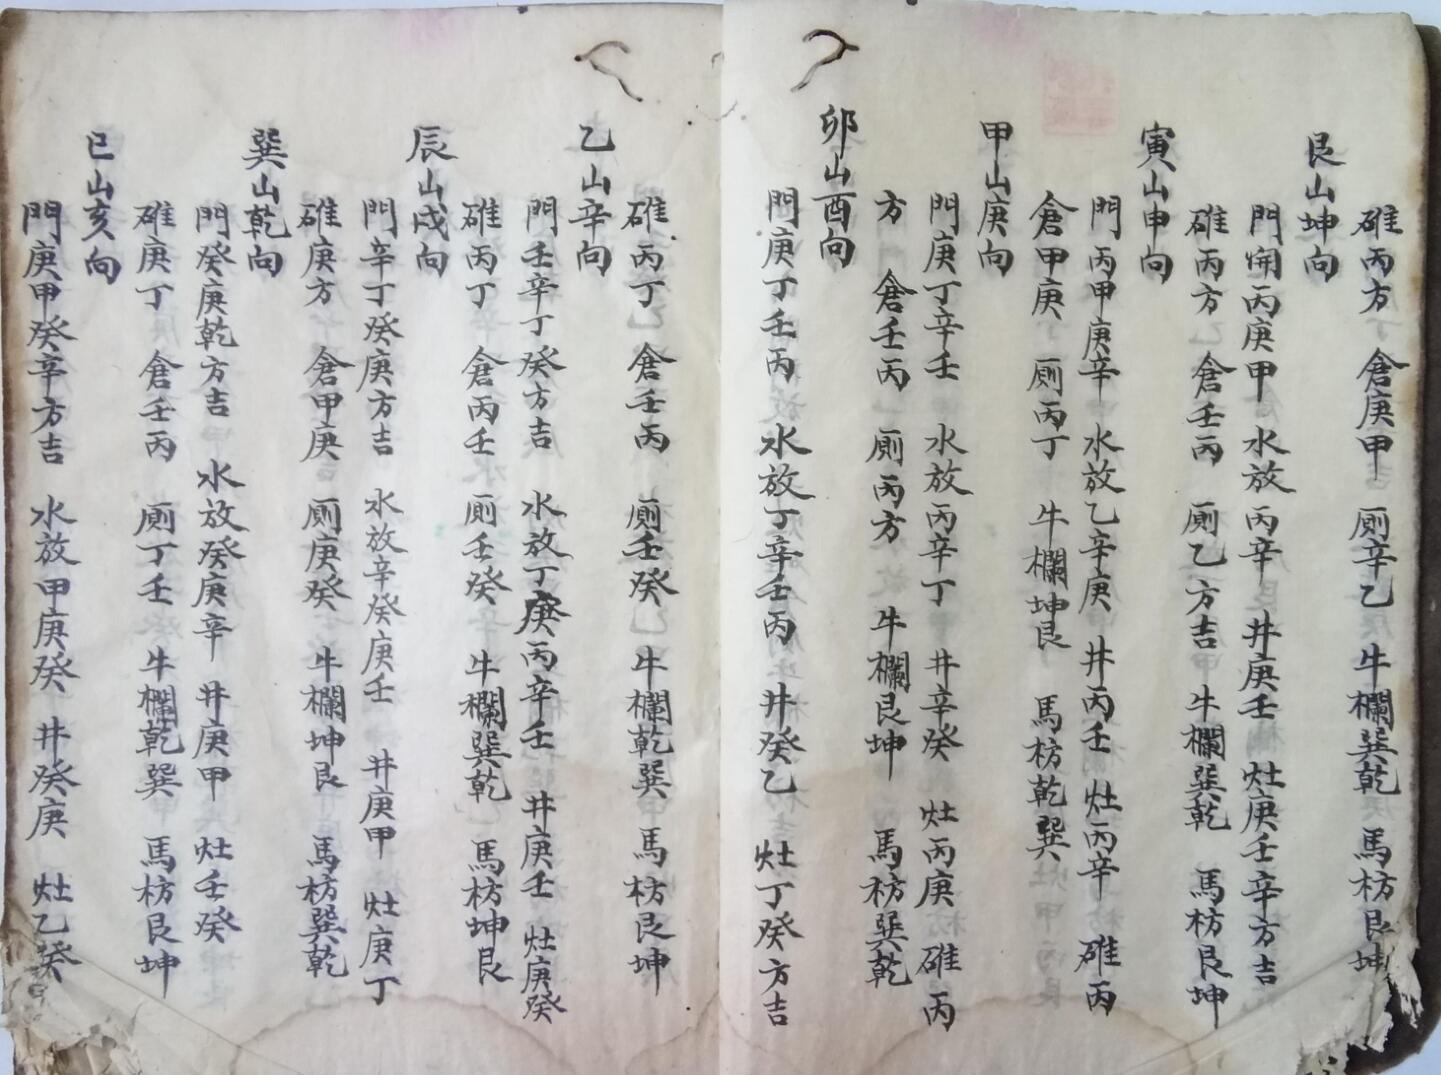 碓丙方 倉庚甲 厠辛乙 牛欄巽乾 馬枋艮坤
艮山坤向
門開丙庚甲 水放丙辛 井庚壬 灶庚壬辛方吉
碓丙方 倉壬丙 厠乙方吉 牛欄巽乾 馬枋艮坤
寅山申向
門丙甲庚辛 水放乙辛庚 井丙壬 灶丙辛 碓丙
倉甲庚 厠丙丁 牛欄坤艮 馬枋乾巽
甲山庚向
門庚丁辛壬 水放丙辛丁 井辛癸 灶丙庚 碓丙
方 倉壬丙 厠丙方 牛欄艮坤 馬枋巽乾
卯山酉向
門庚丁壬丙 水放丁辛壬丙 井癸乙 灶丁癸方吉
碓丙丁 倉壬丙 厠壬癸 牛欄乾巽 馬枋艮坤
乙山辛向
門壬辛丁癸方吉 水放丁庚丙辛壬 井庚壬 灶庚癸
碓丙丁 倉丙壬 厠壬癸 牛欄巽乾 馬枋坤艮
辰山戌向
門辛丁癸庚方吉 水放辛癸庚壬 井庚甲 灶庚丁
碓庚方 倉甲庚 厠庚癸 牛欄坤艮 馬枋巽乾
巽山乾向
門癸庚乾方吉 水放癸庚辛 井庚甲 灶壬癸
碓庚丁 倉壬丙 厠丁壬 牛欄乾巽 馬枋艮坤
巳山亥向
門庚甲癸辛方吉 水放甲庚癸 井癸庚 灶乙癸